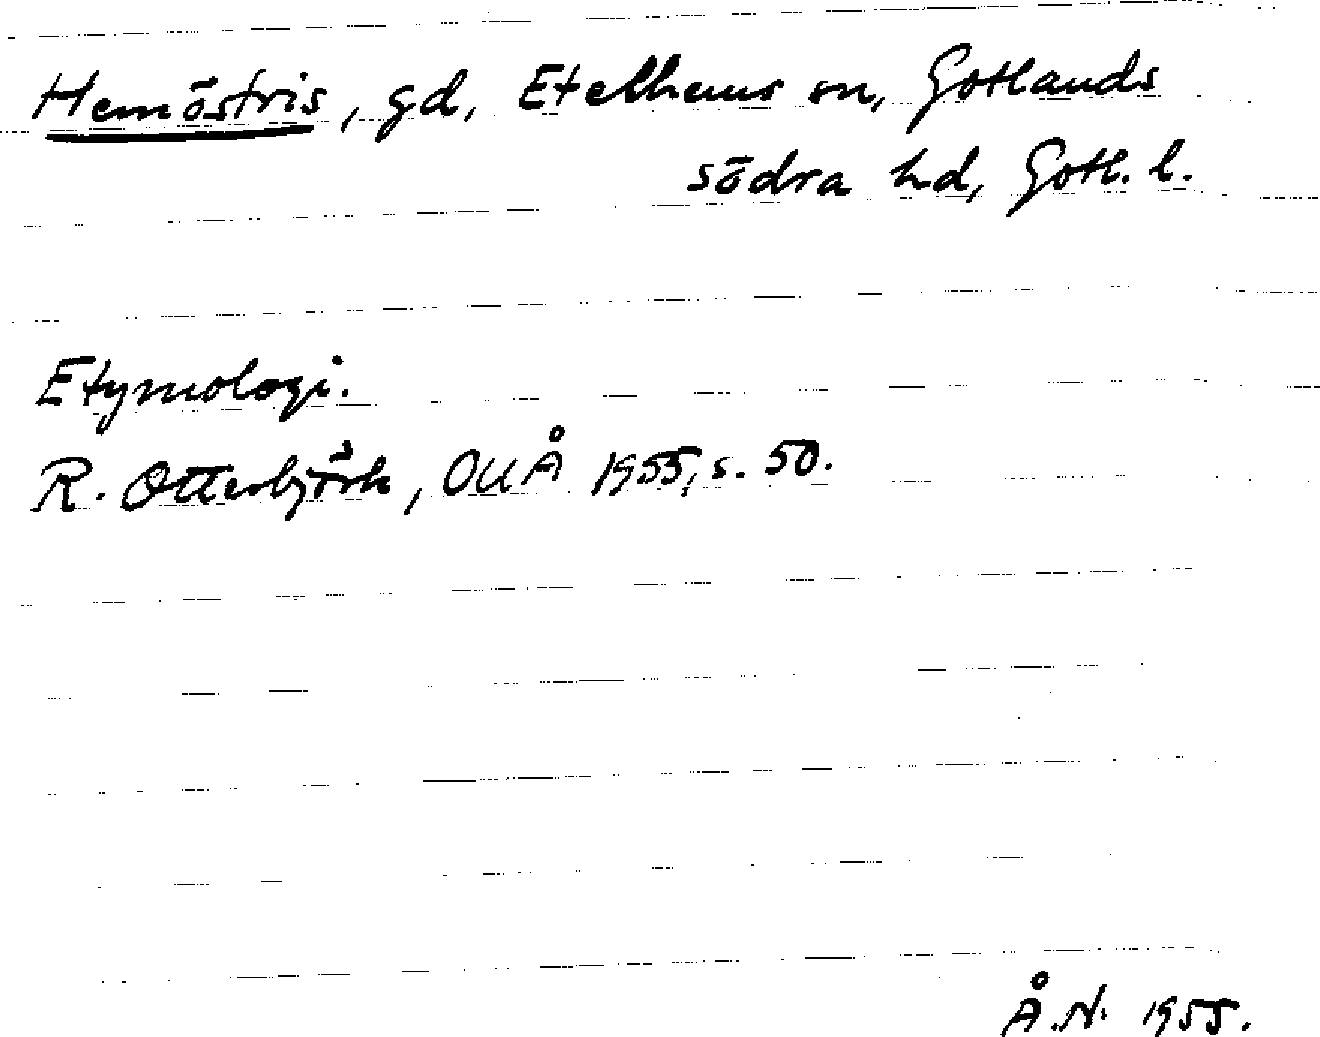 Hemöstris, gd, Etelhems sn, Gotlands
södra hd, Gotl. l.
Etymologi.
R. Otterbjörk, OUÅ 1955, s. 50.
Å.N. 1955.